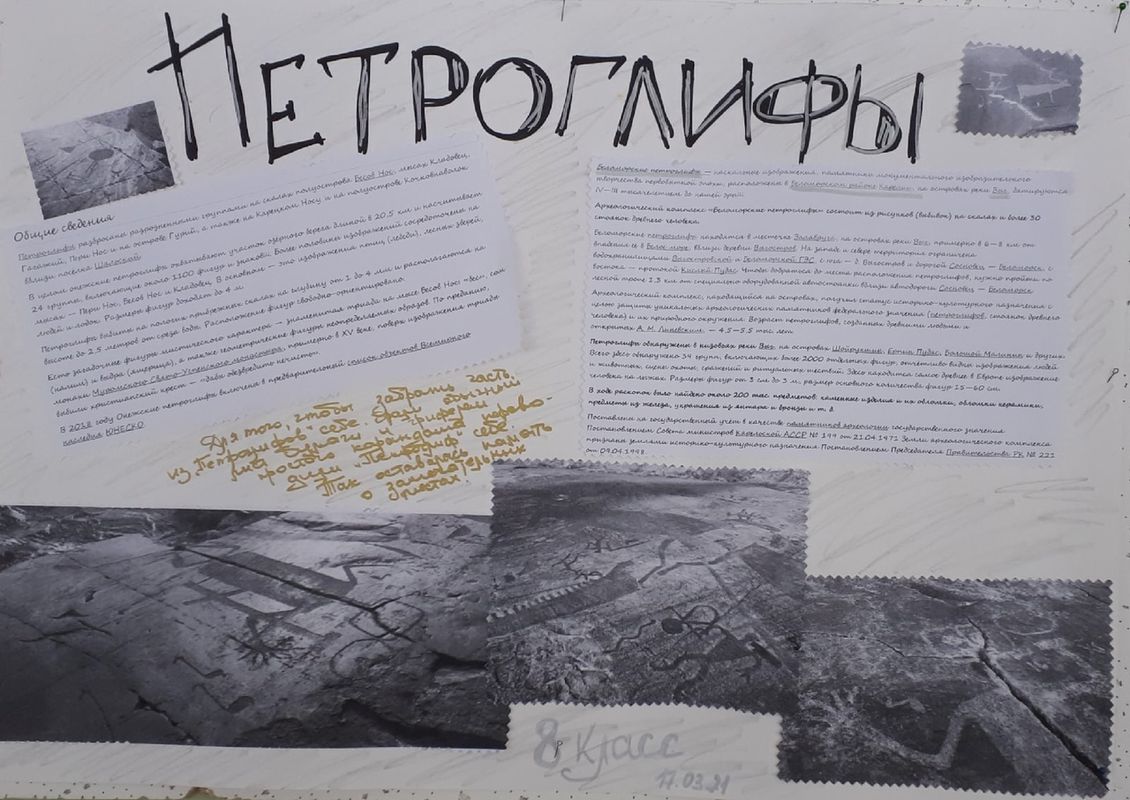 Петроглифы
Общие сведения
Петроглифы разбросаны разрозненными группами на скалах полуострова Бесов Нос, мысах Кладовец,
Гажий, Пери Нос и на острове Гурий, а также на Карецком Носу и на полуострове Кочковнаволок
вблизи поселка Шальский.
В целом онежские петроглифы охватывают участок озерного берега длиной в 20.5 км и насчитывает
24 группы, включающие около 1100 фигур и знаков. Более половины изображений сосредоточены на
мысах — Пери Нос, Бесов Нос и Кладовец. В основном — это изображения птиц (лебеди), лесных зверей,
людей и лодок. Размеры фигур доходят до 4 м.
Петроглифы выбиты на пологих прибрежных скалах на глубину от 1 до 4 мм и располагаются на
высоте до 2,5 метров от среза воды. Расположение фигур свободно-ориентировано.
Есть загадочные фигуры мистического характера — знаменитая триада на мысе Бесов Нос «бес», сом
(налим) и выдра (ящерица), а также геометрические фигуры неопределенных образов. По преданию,
монахи Муромского Свято-Успенского монастыря, примерно в XV веке, поверх изображения триады
выбили христианский крест — «дабы обезвредить нечисть».
В 2018 году Онежские петроглифы включены в предварительной список объектов Всемирного
наследия ЮНЕСКО.
Беломорские петроглифы — наскальные изображения, памятники монументального изобразительного
творчества первобытной эпохи, расположена в Беломорском районе Карелии, на островах реки Выг, датируются
IV—III тысячелетием до нашей эры.
Археологический комплекс «Беломорские петроглифы» состоит из рисунков (выбивок) на скалах и более 30
стоянок древнего человека.
Беломорские петроглифы находятся в местечке Залавруга, на островах реки Выг, примерно в 6—8 км от
впадения её в Белое море, вблизи деревни Выгостров. На западе и севере территория ограничена
водохранилищами Выгостровской и Беломорской ГЭС, с юга — д. Выгостров и дорогой Сосновец — Беломорск, с
востока — протокой Кислый Пудас. Чтобы добраться до места расположения петроглифов, нужно пройти по
лесной тропе 1,3 км от специально оборудованной автостоянки вблизи автодороги Сосновец — Беломорск.
Археологический комплекс, находящийся на островах, получил статус историко-культурного назначения с
целью защиты уникальных археологических памятников федерального значения (петроглифов, стоянок древнего
человека) и их природного окружения. Возраст петроглифов, созданных древними людьми и
открытых А. М. Линевским — 4,5—5,5 тыс лет.
Петроглифы обнаружены в низовьях реки Выг, на островах Шойрукшин, Ерпин Пудас, Большой Малинин и других.
Всего здесь обнаружено 34 групп, включающих более 2000 отдельных фигур, отчетливо видны изображения людей
и животных, сцены охоты, сражений и ритуальных шествий. Здесь находится самое древнее в Европе изображение
человека на лыжах. Размеры фигур от 3 см до 3 м, размер основного количества фигур 15—60 см.
В ходе раскопок было найдено около 200 тыс предметов: каменные изделия и их обломки, обломки керамики,
предметы из железа, украшения из янтаря и бронзы и т. д.
Поставлены на государственный учет в качестве памятников археологии государственного значения
Постановлением Совета министров Карельской АССР № 199 от 21.04.1971 Земли археологического комплекса
признаны землями историко-культурного назначения Постановлением Председателя Правительства РК № 221
от 09.04.1998.
Для того, чтобы забрать часть
из Петроглифов себе, брали обычный
лист бумаги и грифелем
простого карандаша перево-
дили "Петроглиф" себе.
Так оставалась память
о замечательных
местах!
8 класс
17.03.21